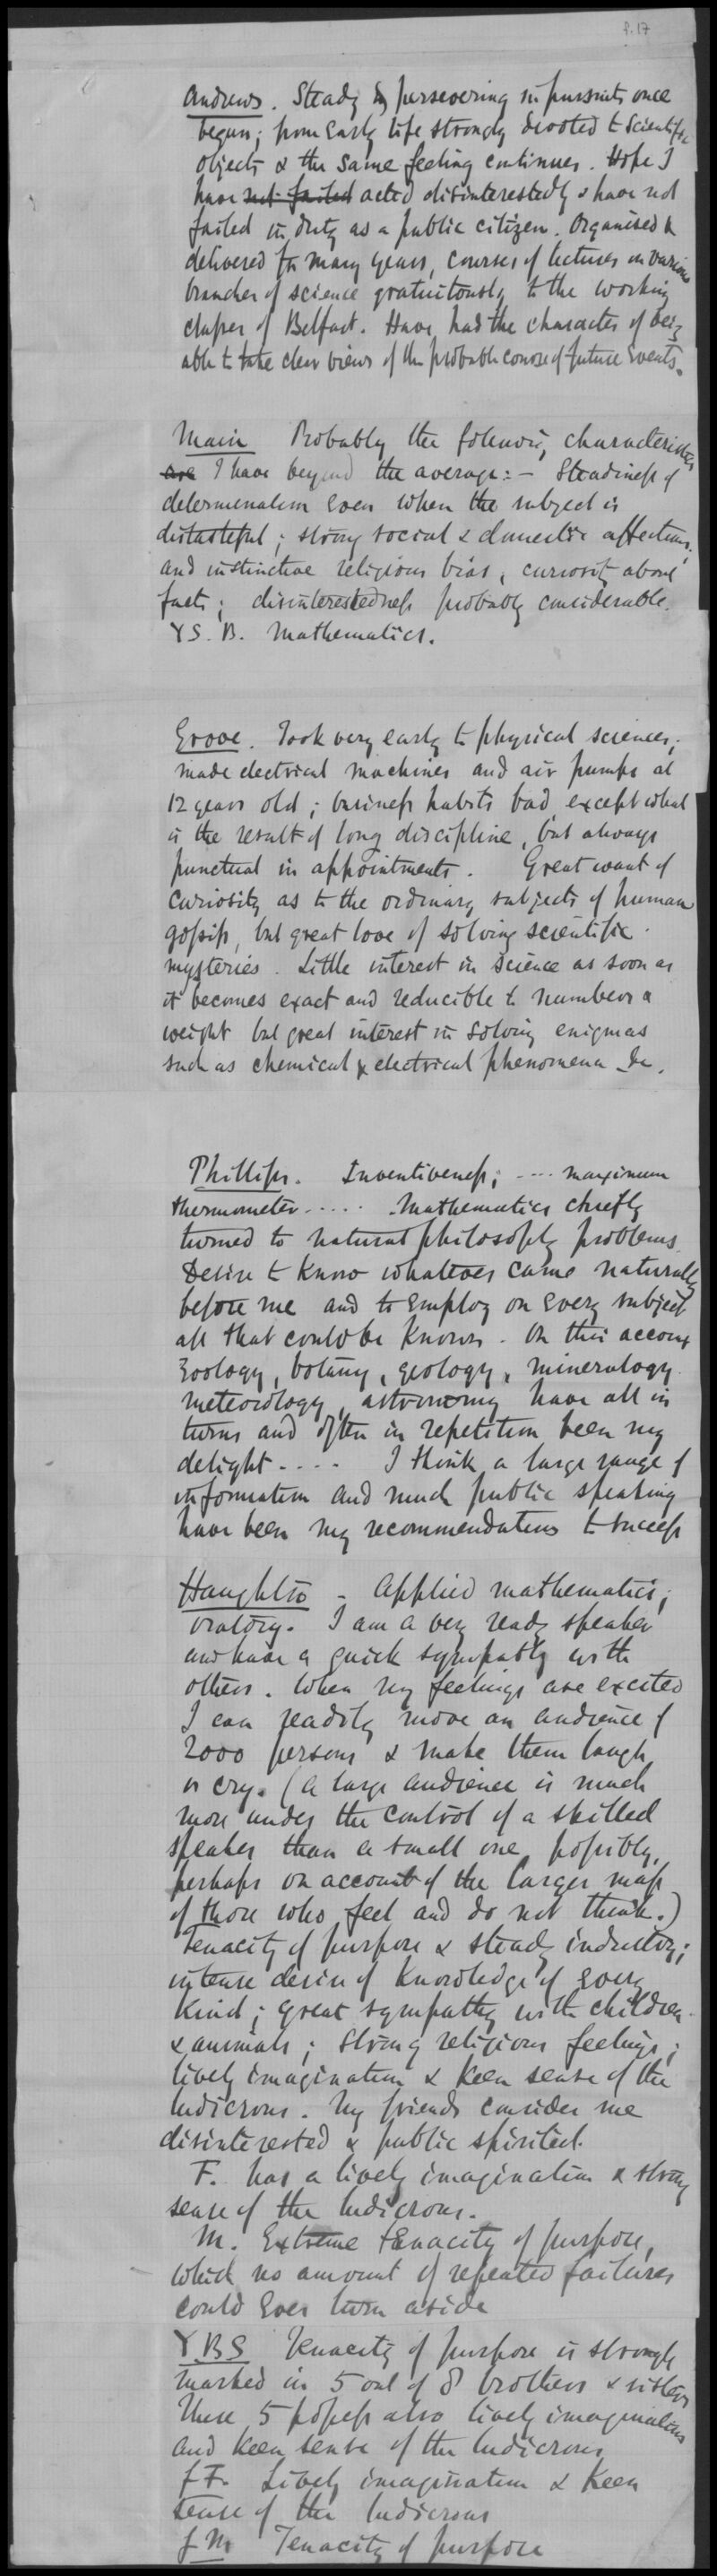 f.17
Andrews. Steady & persevering in pursuits once
begun; from early life strongly devoted to Scientific
objects & the same feeling continues. Hope I
have not failed acted disinterestedly & have not
failed in duty as a public citizen. Organised &
delivered for many years, courses of lectures on various
branches of science gratuitously to the working
classes of Belfast. Have had the character of being
able to take clear views of the probable course of future events.
Main Probably the following characteristics
are I have beyond the average:- Steadiness of
determination even when the subject is
distasteful; strong social & domestic affections;
and instinctive religious bias, curiosity about
facts; disinterestedness probably considerable.
YS. B. Mathematics.
Grove. Took very early to physical sciences;
made electrical machines and air pumps at
12 years old; business habits bad, except what
is the result of long discipline, but always
punctual in appointments. Great want of
curiosity as to the ordinary subjects of human
gossip, but great love of solving scientific
mysteries. Little interest in Science as soon as
it becomes exact and reducible to numbers &
weight but great interest in solving enigmas
such as chemical & electrical phenomena &c.
Phillips. Inventiveness; .... maximum
thermometer..... Mathematics chiefly
turned to natural philosophy problems.
Desire to know whatever came naturally
before me and to employ on every subject
all that could be known. On this account
Zoology, botany, geology, mineralogy
meteorology, astronomy have all in
turns and often in repetition been my
delight.... I think a large range of
information and much public speaking
have been my recommendations to success
Haughton - Applied mathematics;
oratory. I am a very ready speaker
and have a quick sympathy with
others. When my feelings are excited
I can readily move an audience of
2000 persons & make them laugh
or cry. (a large audience is much
more under the control of a skilled
speaker than a small one, possibly,
perhaps on account of the larger mass
of those who feel and do not think.)
Tenacity of purpose & steady industry;
intense desire of knowledge of every
kind; great sympathy with children
& animals; strong religious feelings;
lively imagination & keen sense of the
ludicrous. My friends consider me
disinterested & public spirited.
F. has a lively imagination & strong
sense of the ludicrous.
M. Extreme tenacity of purpose,
which no amount of repeated failures
could ever turn aside
Y.BS Tenacity of purpose is strongly
marked in 5 out of 8 brothers & sisters
These 5 possess also lively imaginations
and keen sense of the ludicrous
fF. Lively imagination & keen
sense of the ludicrous
fM. Tenacity of purpose